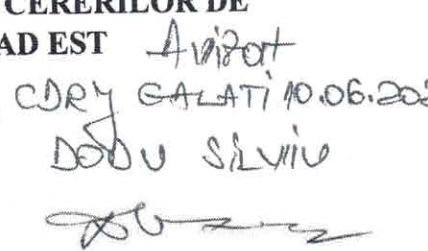 CERERILOR DE
AD EST Avizat
CDRY GALATI 10.06.202
DODU SILVIU